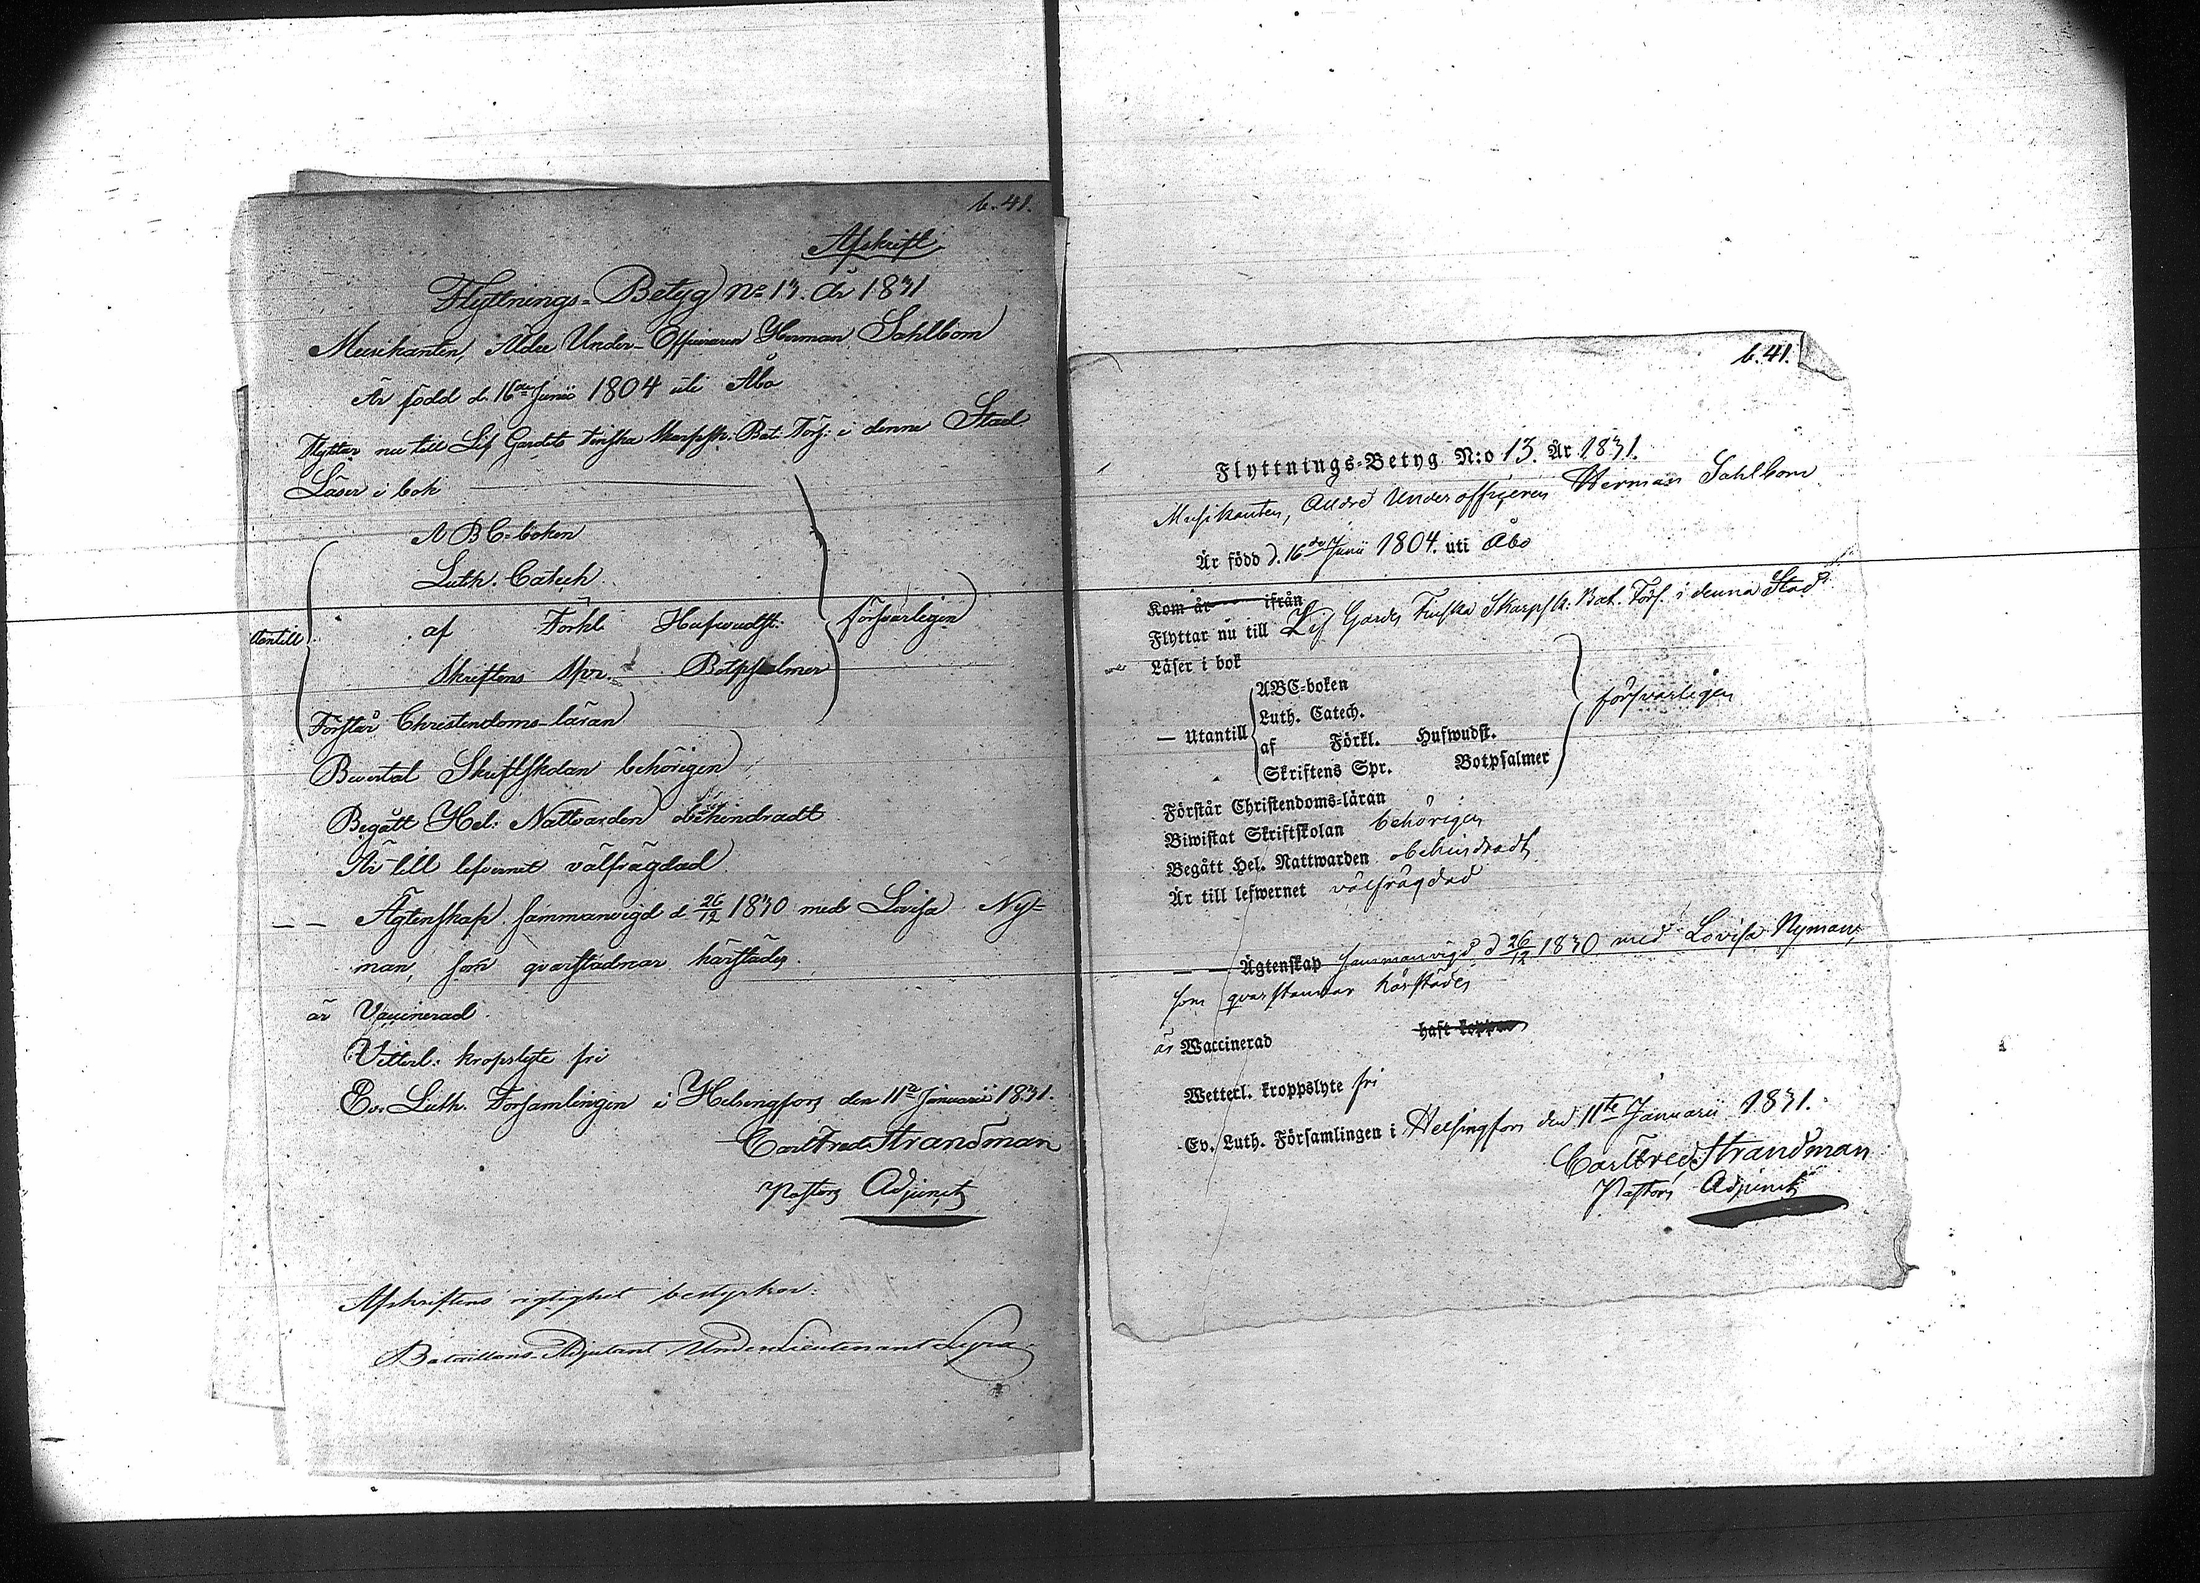 b. 41.
Afskrift
Flyttnings-Betyg No 13. År 1831
Musikanten, Äldre Under-Officeraren Herman Sahlbom
Är född d. 16de Junii 1804 uti Åbo
Flyttar nu till Lif Gardets Finska Skarpsk. Bat. Förs. i denna Stad
Läser i bok
ABC-boken
Luth. Catech.
utantill af Förkl. Hufwudst. försvarligen
Skriftens Spr. Botpsalmer
Förstår Christendoms-läran
Bivistat Skriftskolan behörigen
Begått Hel. Nattvarden obehindradt
Är till lefvernet välfrägdad
— — Ägtenskap sammanvigd d. 26/12 1830 med Lovisa Ny-
man, som qvarstadnar härstädes.
är Vaccinerad
Vitterl. kropslyte fri
Ev. Luth. Församlingen i Helsingfors den 11te Januarii 1831.
Carl Fred. Strandman
Pastors Adjunct
Afskriftens rigtighet bestyrker:
Bataillons-Adjutant UnderLieutenant
b. 41.
Flyttnings-Betyg N:o 13. År 1831.
Musikanten, Äldre Underofficeren Herman Sahlbom
Är född d. 16de Junii 1804. uti Åbo
Kom år ifrån
Flyttar nu till Lif Gardes Finska Skarpsk. Bat. Förs. i denna Stad
Läser i bok
ABC-boken
Luth. Catech.
— Utantill af Förkl. Hufwudst. försvarligen
Skriftens Spr. Botpsalmer
Förstår Christendoms-läran
Biwistat Skriftskolan behörigen
Begått Hel. Nattwarden obehindradt
Är till lefwernet välfrägdad
— — Ägtenskap sammanvigd d. 26/12 1830 med Lovisa Nyman,
som qvarstannar härstädes
är Waccinerad haft koppor
Wetterl. kroppslyte fri
Ev. Luth. Församlingen i Helsingfors den 11te Januarii 1831.
Carl Fred. Strandman
Pastors Adjunct